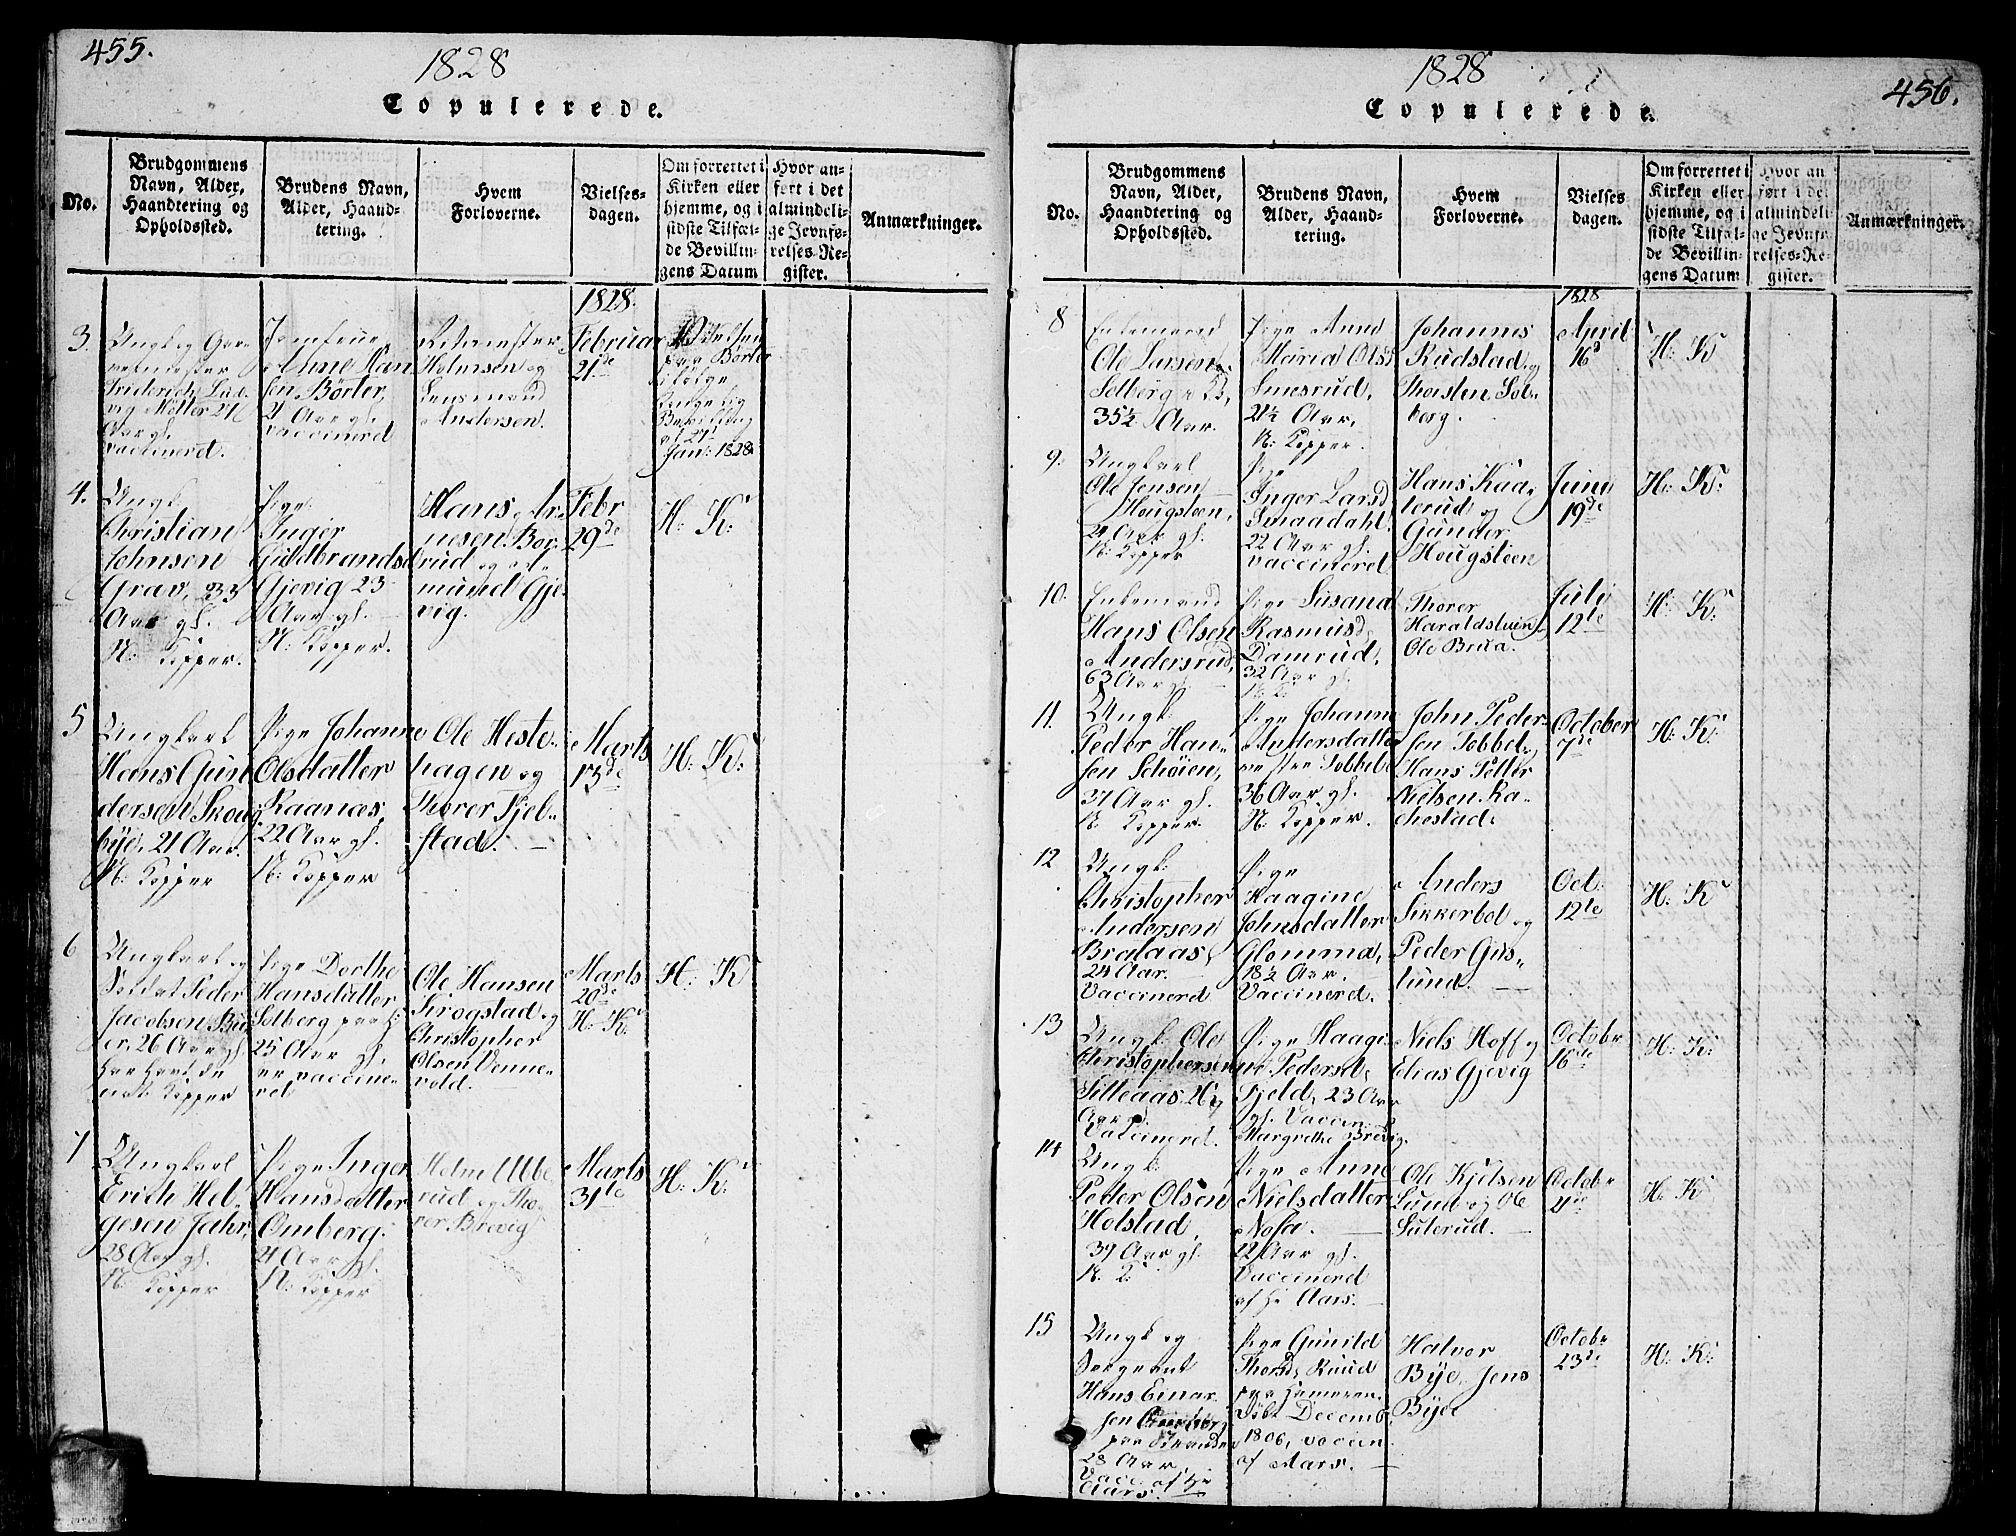 455.
1828
Copulerede.
No.
Brudgommens
Navn, Alder,
Haandtering og
Opholdssted.
Brudens Navn,
Alder, Haand-
tering.
Hvem
Forloverne.
Vielses-
dagen.
Om forrettet i
Kirken eller
hjemme, og i
sidste Tilfæl-
de Bevillin-
gens Datum
Hvor an-
ført i det
almindeli-
ge Jevnfø-
relses-Re-
gister.
Anmærkninger.
1828.
3.
Ungk og
Friderich Lud-
vig Møller 24
Aar gl.
vaccinerd.
Jomfrue
Anne Han
sen Børter,
21 Aar gl.
vaccinerd
Holmsen og
Lensmand
Andersen.
Februar
21de
Vielsen
paa Børter
ifølge
Bevilling
af 27
Jan: 1828.
4.
Ungk.
Christian
Johnsen
Grav, 33
Aar gl.
N: Kopper.
Pige
Inger
Guldbrandsd
Gjevig 23
Aar gl.
N: Kopper.
Hans Ar-
nesen Bor-
rud og
mund Gje-
vig.
Febr
29de
H: K:
5
Ungkarl
Hans Gun
dersen Skoug
bye, 21 Aar.
N: Kopper
Pige Johanne
Olsdatter
Raanæs,
22 Aar gl.
N: Kopper
Ole Heste-
hagen og
Thorer Fjel-
stad. —
Marts
13de
H: K:
6
Ungkarl og
Soldat Peder
Jacobsen
26 Aar gl.
har havt de
nat: Kopper
Pige Dorthe
Hansdatter
Solberg
25 Aar gl.
er vaccine-
red
Ole Hansen
Krogstad og
Christopher
Olsen Venne-
vold.
Marts
20de
H: K:
H: K
7
Ungkarl
Erich Hel-
gesen Jahr,
28 Aar gl.
N: Kopper
Pige Inger
Hansdatter
Omberg
21 Aar gl.
N: Kopper
Ulve
rud og Tho-
rer Brevig
Marts
31te
H: K:
1828
Copulerede.
456.
No.
Brudgommens
Navn, Alder,
Haandtering og
Opholdssted.
Brudens Navn,
Alder, Haand-
tering.
Hvem
Forloverne.
Vielses
dagen.
Om forrettet i
Kirken eller
hjemme, og i
sidste Tilfæl-
de Bevillin-
gens Datum
Hvor an
ført i det
almindeli
ge Jevnfø
relses-Re
gister.
Anmærkninger.
1828
8
Enkemand
Ole Larsen
Solberg
35½ Aar.
Pige Anne
Maria Olsd
Smesrud,
21½ Aar,
N: Kopper.
Johannes
Rudstad og
Thorsten Sol-
berg.
April
16d
H: K
9.
Ungkarl
Ole Jensen
Hougsteen,
24 Aar gl.
N: Kopper
Pige
Inger Larsd
Smaadahl,
22 Aar gl.
vaccinered
Hans Kaa-
terud og
Gunder
Hougsteen
Juni
19de
H: K:
10.
Enkemand
Hans Olsen
Andersrud,
63 Aar gl.
Pige Susana
Rasmusd
Damrud,
32 Aar gl.
N: K:
Thorer
Haraldstuen,
Ole Brua.
Juli
12te
H: K:
11.
Ungk.
Peder Han-
sen Schøien,
37 Aar gl.
N: Kopper.
Pige Johanne
Andersdatter
vestre Tobbel
36 Aar gl.
N: Kopper.
John Peder-
sen Tobbel,
Hans Petter
Nielsen Ra-
kestad.
October
7de
H: K:
12
Ungk:
Christopher
Andersen
Braaaas,
24 Aar.
Vaccinerd
Pige
Haagine
Johnsdatter
Glomma,
18½ Aar.
Vaccinerd.
Anders
Sikkerbol og
Peder Gus-
lund. —
Oct:
12te
H: K
13
Ungk. Ole
Christophersen
Titteaas 26
Aar gl.
Vaccinerd.
Pige Haagi
ne Pedersd,
Fjeld, 23 Aar
gl. Vaccin.
Margrethe Brevig.
Niels Hoff og
Elias Gjevig
Octobr
16de
H: K:
14
Ungk:
Petter Olsen
Holstad,
39 Aar gl.
N. K:
Pige Anne
Nielsdatter
Nosa. —
22 Aar gl.
Vaccinerd
af Hr Aars. —
Ole Kjelsen
Lund og Ole
Suterud. —
Octobr
H: K
15
Ungk og
Sergeant
Hans Einar
sen
28 Aar,
Vacc. af Hr
Aars.
Pige Gunild
Thorsd, Ruud
døbt Decemb
1806, vaccin
af Aars. —
Halvor
Bye, Jens
Bye
Octobr
23de
H: K: